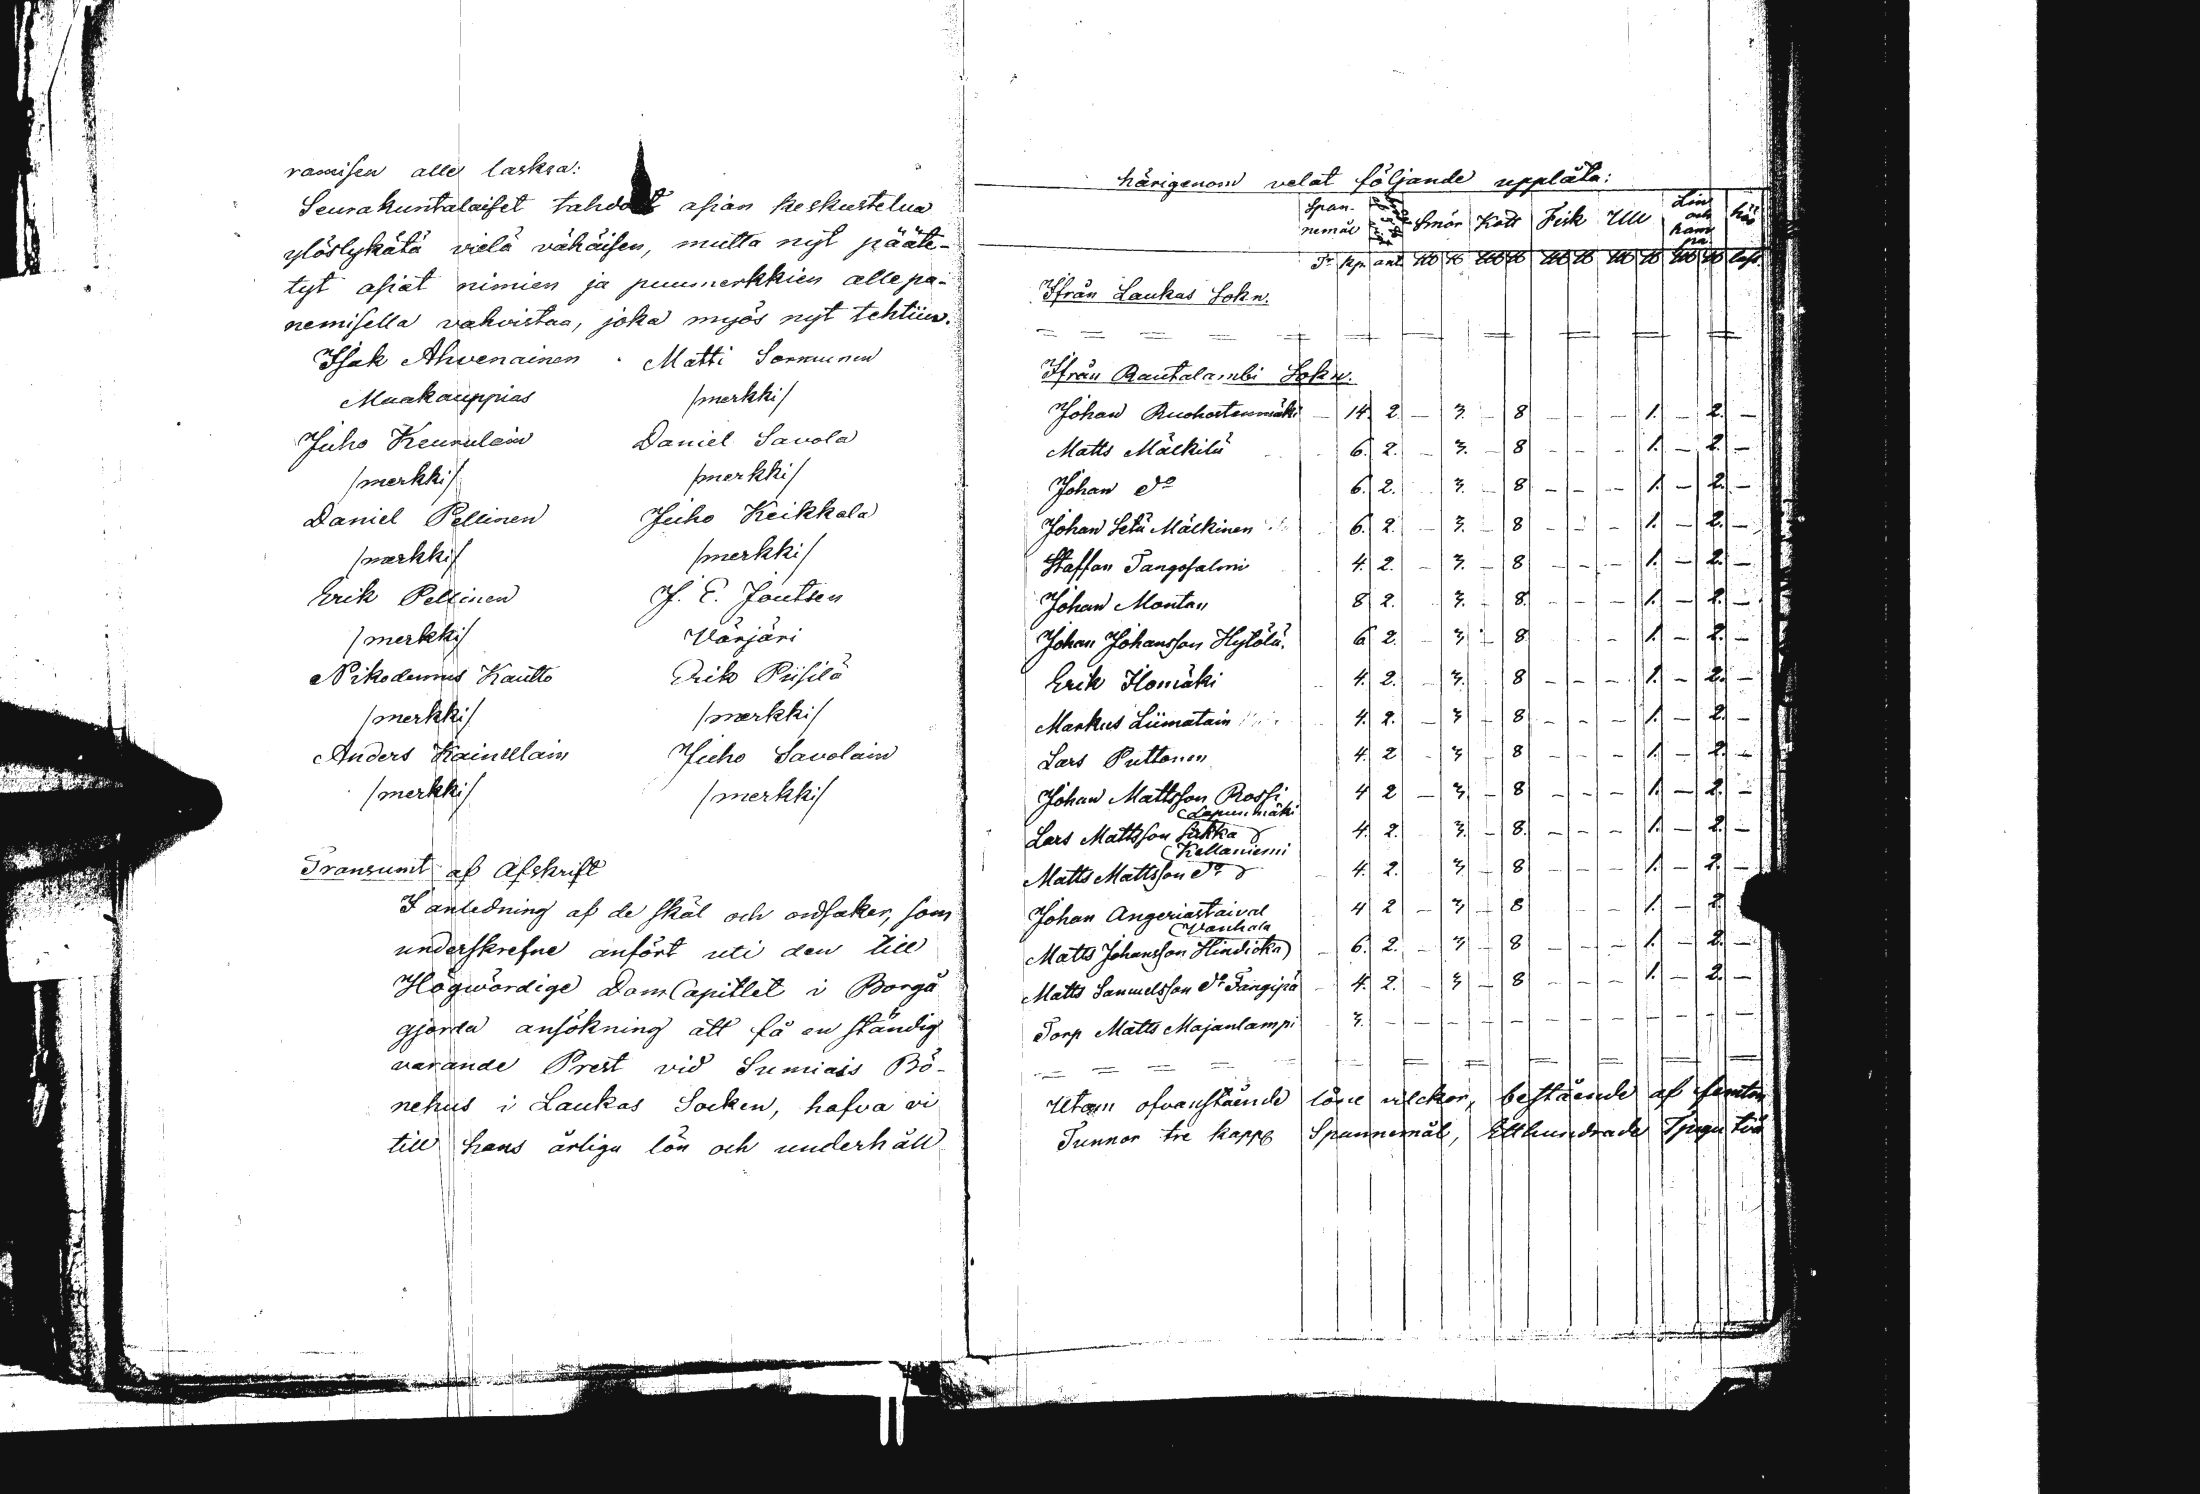 ramisen alle laskea:
Seurakuntalaiset tahdo t asian keskustelua
ylöslykätä vielä vähäisen, mutta nyt pääte-
tyt asiat nimien ja puumerkkien allepa-
nemisella vahvistaa, joka myös nyt tehtiin.
Isak Ahvenainen Matti Sormunen
Maakauppias /merkki/
Juho Keurulain Daniel Savola
/merkki/ /merkki/
Daniel Pellinen Juho Keikkala
/merkki/ /merkki/
Erik Pellinen J. E. Joutsen
/merkki/ Värjäri
Nikodemus Kautto Erik Piisilä
/merkki/ /merkki/
Anders Kainulain Juho Savolain
/merkki/ /merkki/
Transumt af Afskrift
I anledning af de skäl och orsaker, som
underskrefne anfört uti den till
Högwördige DomCapitlet i Borgå
gjorda ansökning att få en ständig
varande Prest vid Sumiais Bö-
nehus i Laukas Socken, hafva vi
till hans årliga lön och underhåll
härigenom velat följande upplåta:
Span-
nemål Smör Kött Fisk Ull Lin
och
ham
pa hö
Tr kp. ant. LU U LU U LU U LU U LU U lass
Ifrån Laukas Sokn.
Ifrån Rautalambi Sokn.
Johan Ruohostenmäki — 14. 2. — 3. — 8 — — — 1. — 2. —
Matts Mälkilä 6. 2. — 3. — 8 — — — 1. — 2. —
Johan do 6. 2. 3. — 8 — — — 1. — 2. —
Johan Setä Mälkinen 6. 2. — 3. — 8 — — — 1. — 2. —
Staffan Tangosalmi 4. 2. — 3. — 8 — — — 1. — 2. —
Johan Montan 8 2. 3. — 8. — — — 1. — 2. —
Johan Johansson Hytölä. 6 2. — 3 — 8 — 1. — 2. —
Erik Ilomäki 4. 2. — 3. 8 — — — 1. — 2. —
Markus Liimatain 4. 2. — 3 — 8 — — — 1. — 2. —
Lars Puttonen 4. 2 — 3 — 8 — — — 1. — 2. —
Johan Mattsson Rossi 4 2 — 3 — 8 — — — 1. — 2. —
Lars Mattsson Sirkka (Lepunmäki) 4. 2. 3. — 8. — — — 1. — 2. —
Matts Mattsson do (Kellaniemi) 4. 2. 3 — 8 — — — 1. — 2. —
Johan Angeriastaival 4 2 — 3 — 8 — — 1. — 2
Matts Johansson Hindicka (Vanhala) — 6. 2. — 3 — 8 — — — 1. — 2. —
Matts Samuelsson do Tangipä 4. 2. — 3 — 8 — — — 1. — 2. —
Torp Matts Majanlampi 3. — — — — — — — — — — —
Utom ofvanstående löne vilckor, bestående af femton
Tunnor tre kappe Spannemål, Etthundrade Tjugu två